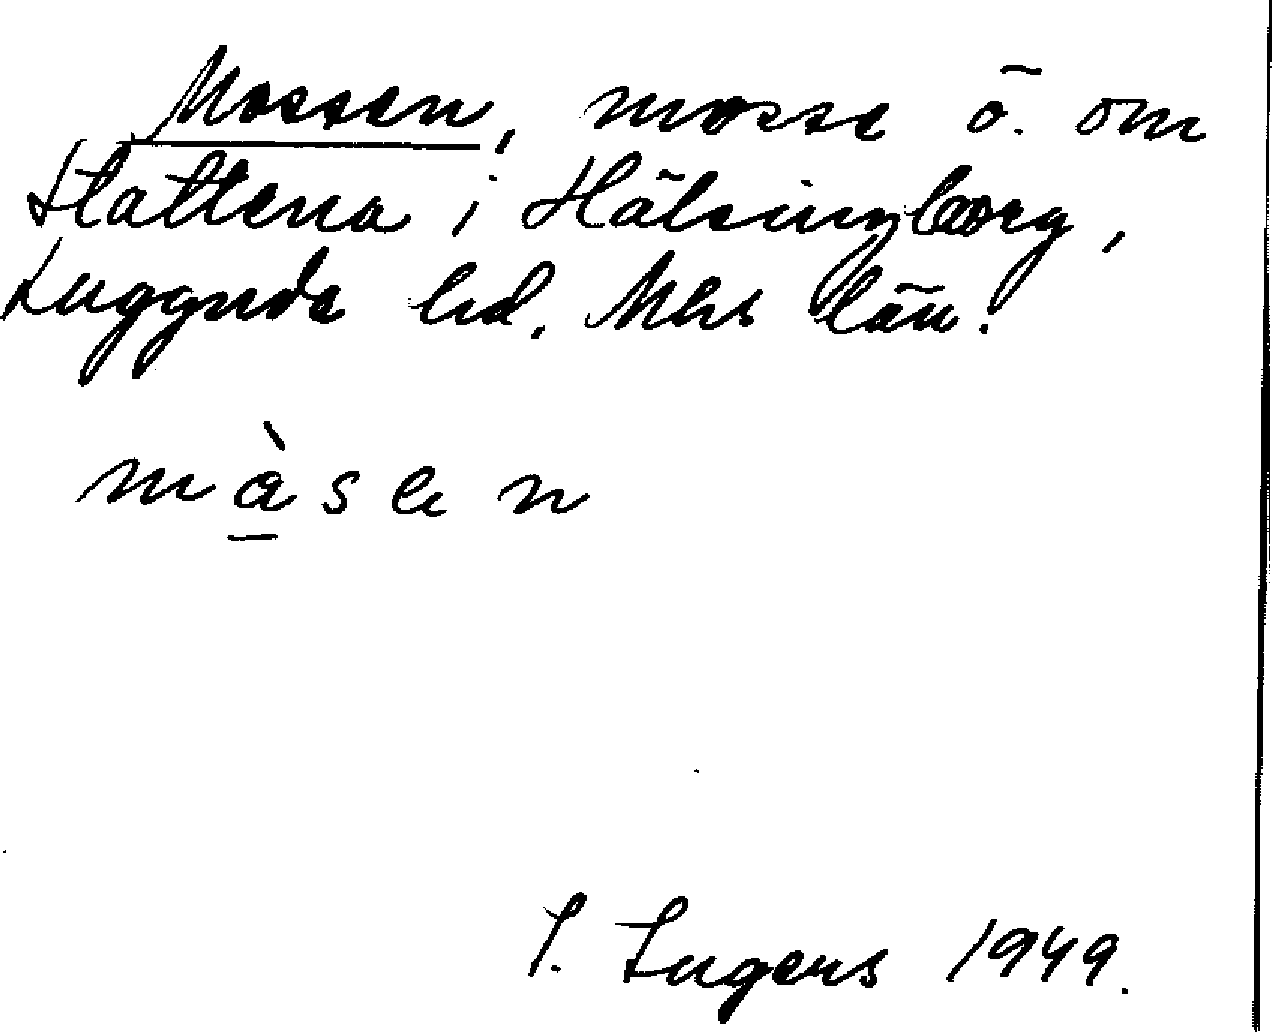 Mossen, mosse ö. om
Hattena i Hälsingborg,
Luggude hd. Mhs län.
måsen
S. Ingers 1949.